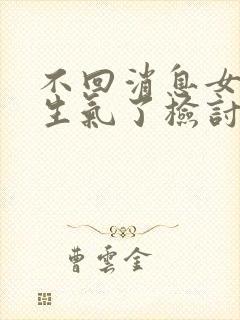 不回消息女
生氣了檢討
曹雲金